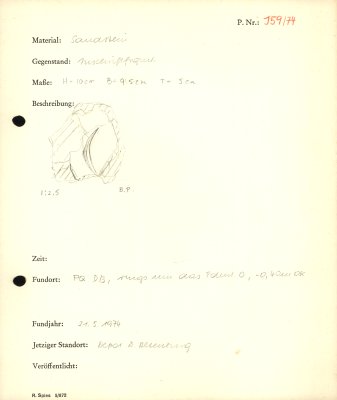 P. Nr.: 159/74
Material: Sandstein
Gegenstand: Inschriftfragment
Maße: H = 10cm B = 9,5cm T = 5cm
Beschreibung:
1:2,5 B.P
Zeit:
Fundort: FQ DB, rings um das Fdmt 0, -0,40m OK
Fundjahr: 21.5.1974
Jetziger Standort: Depot D. Altenburg
Veröffentlicht:
R. Spies 5/073